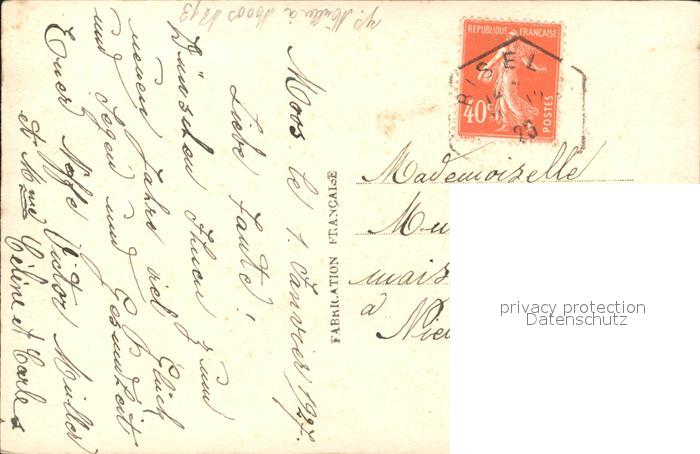 Moos le 1. Janvier 1927.
Liebe Tante!
Wünschen Ihnen zum
neuen Jahre viel Glück
und Segen und Gesundheit
Euer Neffe Victor Müller
et Mme Céline et Carles
FABRICATION FRANÇAISE
REPUBLIQUE FRANÇAISE
40c
POSTES
RISEL
Mademoiselle
Mu
mais
à
Nie
privacy protection
Datenschutz